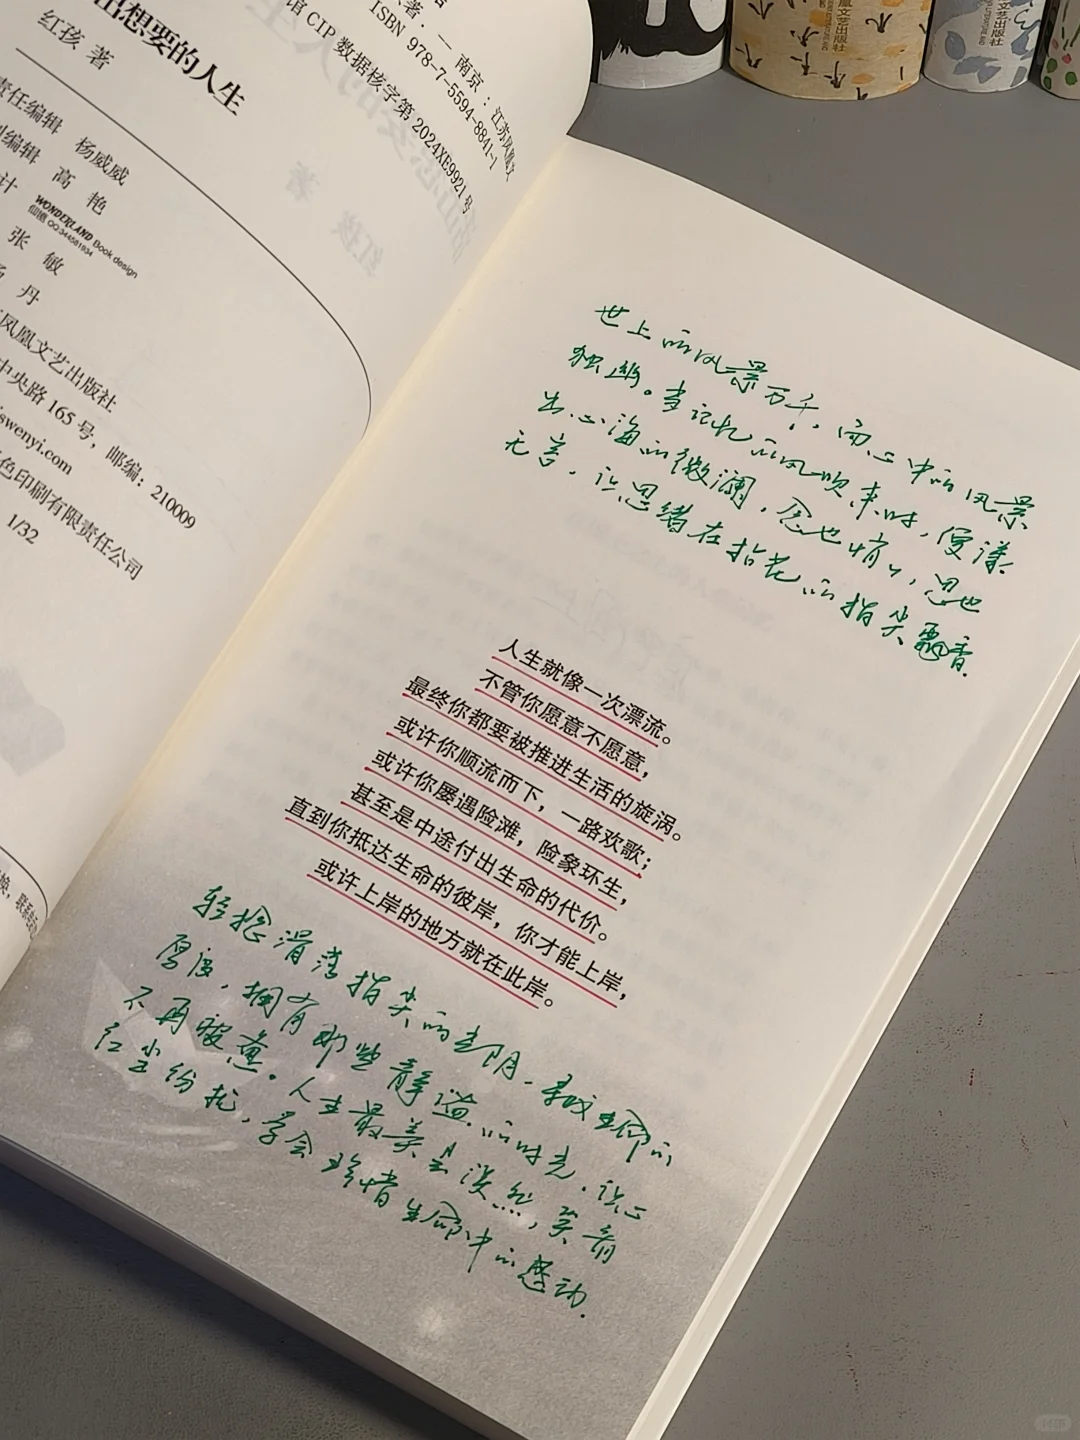 出想要的人生
红孩 著
责任编辑 杨威威
编辑 高 艳
计
WONDERLAND Book design
仙境 QQ:344581934
张 敏
丹
凤凰文艺出版社
中央路 165 号，邮编：210009
swenyi.com
色印刷有限责任公司
1/32
著. — 南京 : 江苏凤凰文
ISBN 978-7-5594-8841-1
馆 CIP 数据核字第 2024XE9921 号
世上的风景万千，而心中的风景
独幽。当记忆的风吹来时，便漾
出心海的微澜，念也悄悄，思也
无言，让思绪在拈花的指尖飘香.
人生就像一次漂流。
不管你愿意不愿意，
最终你都要被推进生活的旋涡。
或许你顺流而下，一路欢歌；
或许你屡遇险滩，险象环生，
甚至是中途付出生命的代价。
直到你抵达生命的彼岸，你才能上岸，
或许上岸的地方就在此岸。
轻捻滑落指尖的光阴，寻找生命的
厚度，拥有那些静谧的时光，让心
不再疲惫。人生最美是淡然，笑看
红尘纷扰，学会珍惜生命中的感动.
文艺出版社